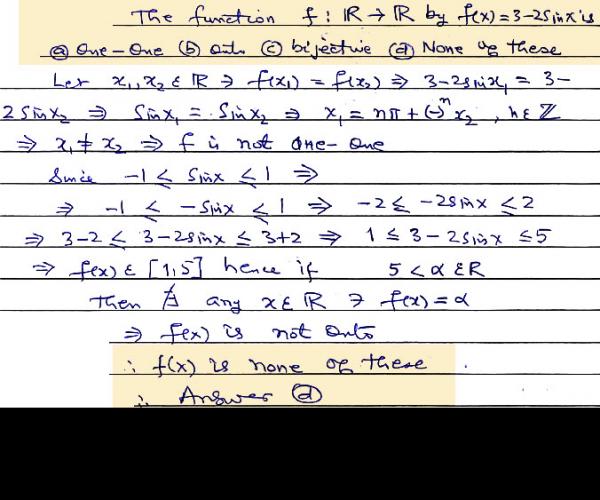 The function f : ℝ → ℝ by f(x) = 3-2sinx is
ⓐ One-One ⓑ onto ⓒ bijective ⓓ None of these
Let x₁, x₂ ∈ ℝ ∋ f(x₁) = f(x₂) ⇒ 3-2sinx₁ = 3-
2sinx₂ ⇒ Sinx₁ = Sinx₂ ⇒ x₁ = nπ + (-)ⁿ x₂ , n ∈ ℤ
⇒ x₁ ≠ x₂ ⇒ f is not one-one
Since -1 ≤ Sinx ≤ 1 ⇒
⇒ -1 ≤ -Sinx ≤ 1 ⇒ -2 ≤ -2sinx ≤ 2
⇒ 3-2 ≤ 3-2sinx ≤ 3+2 ⇒ 1 ≤ 3-2sinx ≤ 5
⇒ f(x) ∈ [1,5] hence if 5 < α ∈ R
Then ∄ any x ∈ ℝ ∋ f(x) = α
⇒ f(x) is not Onto
∴ f(x) is none of these .
∴ Answer ⓓ